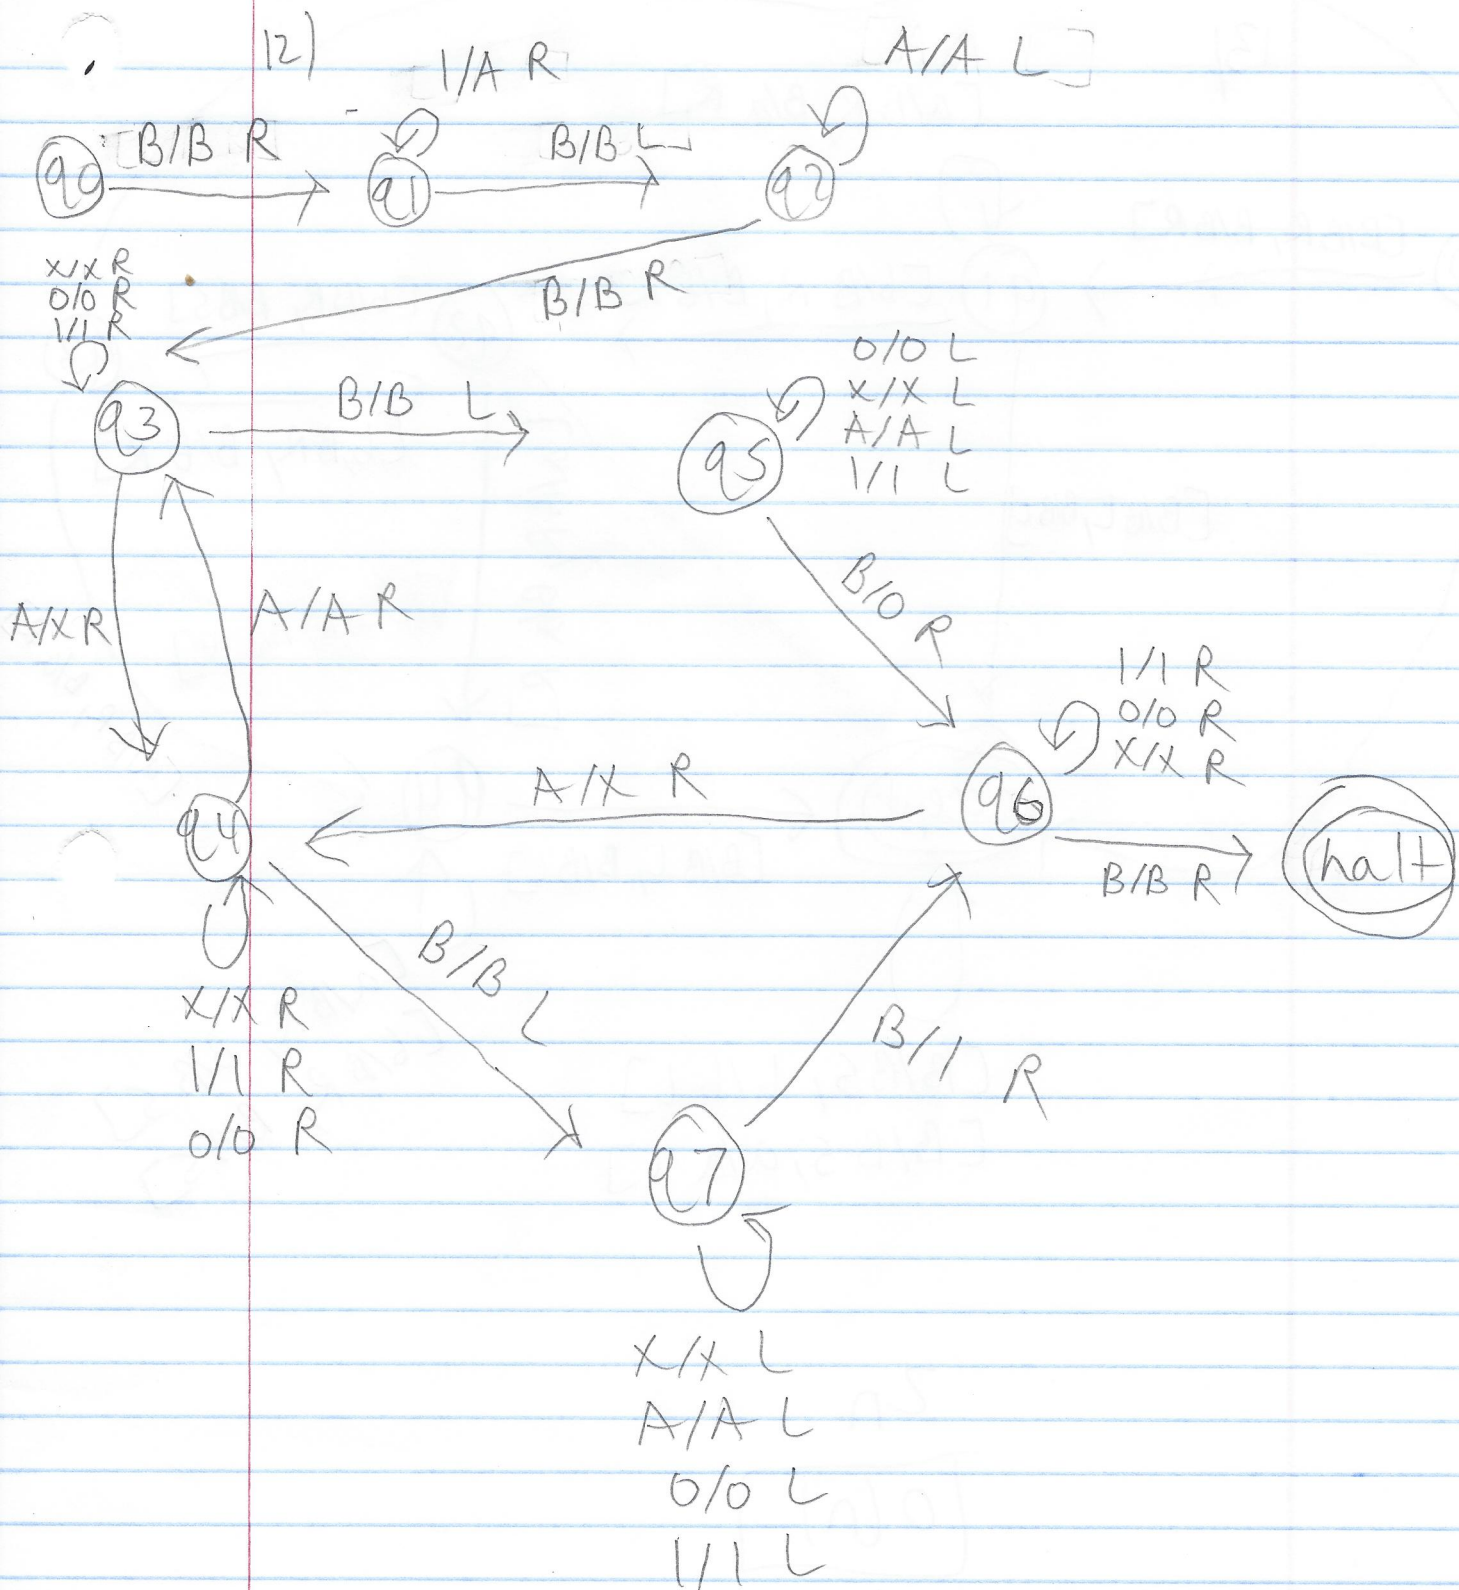 12)
1/A R
A/A L
B/B R
B/B L
q0
q1
q2
X/X R
0/0 R
1/1 R
B/B R
q3
B/B L
0/0 L
X/X L
A/A L
1/1 L
q5
A/X R
A/A R
B/0 R
1/1 R
0/0 R
X/X R
q4
A/X R
q6
B/B R
halt
X/X R
1/1 R
0/0 R
B/B L
B/1 R
q7
X/X L
A/A L
0/0 L
1/1 L